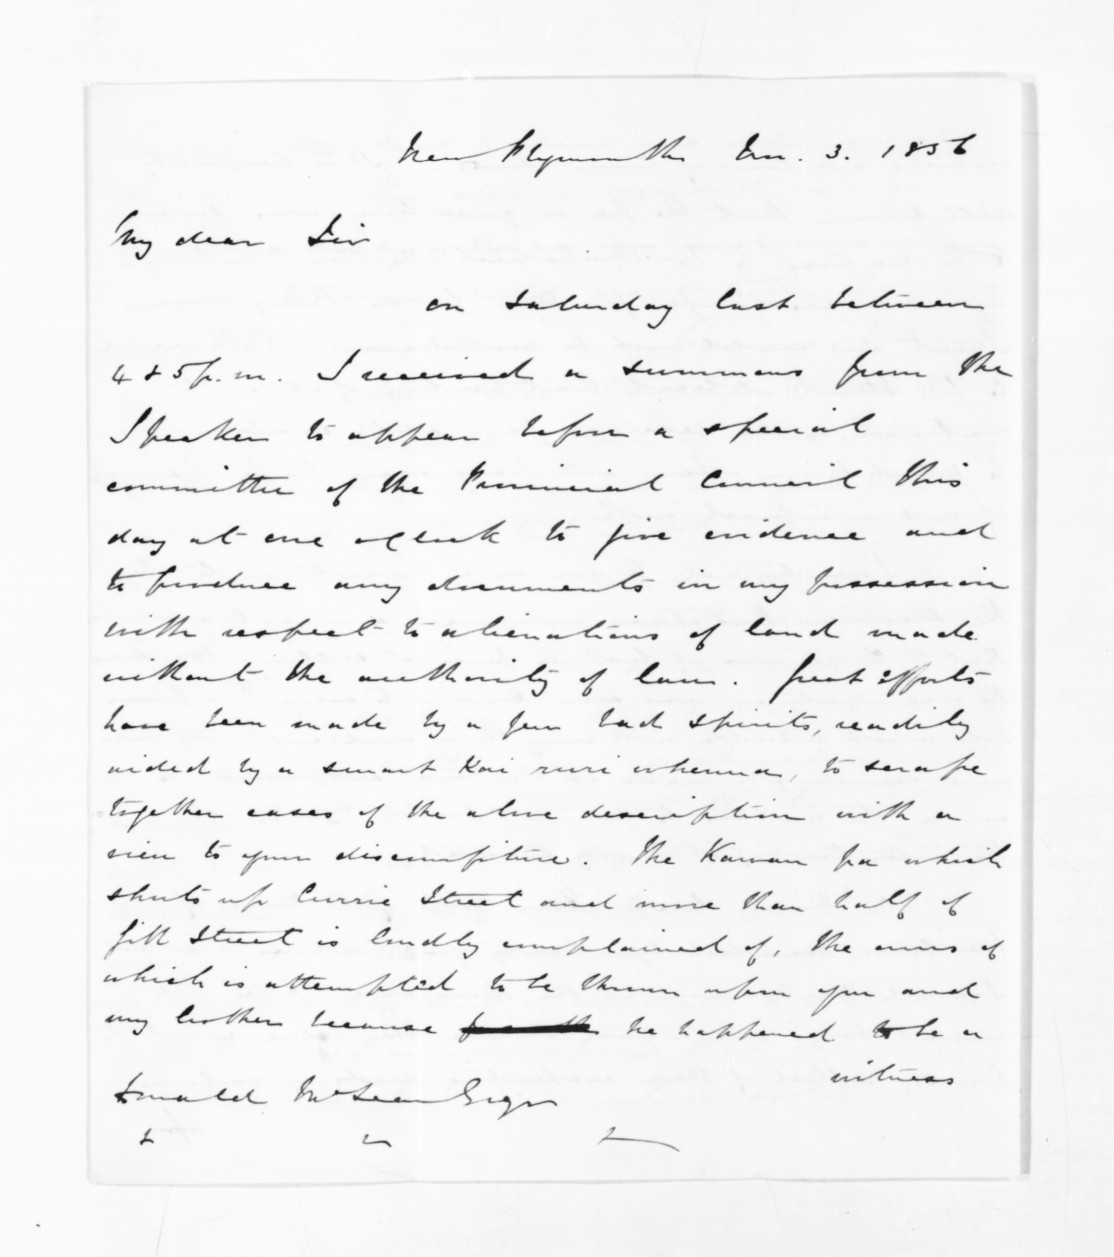 New Plymouth Nov. 3. 1856
My dear Sir
on Saturday last between
4 & 5 p.m. I received a summons from the
Speaker to appear before a special
committee of the Provincial Council this
day at one o'Clock to give evidence and
to produce any documents in my possession
with respect to alienations of land made
without the authority of law. Great efforts
have been made by a few bad spirits, readily
aided by a smart Kai ruri whenua, to scrape
together cases of the above description with a
view to your discomfiture. The Kawau pa which
shuts up Currie Street and more than half of
Gill Street is loudly complained of, the onus of
which is attempted to be thrown upon you and
my brother because he happened to be a
witness
Donald McLean Esqr